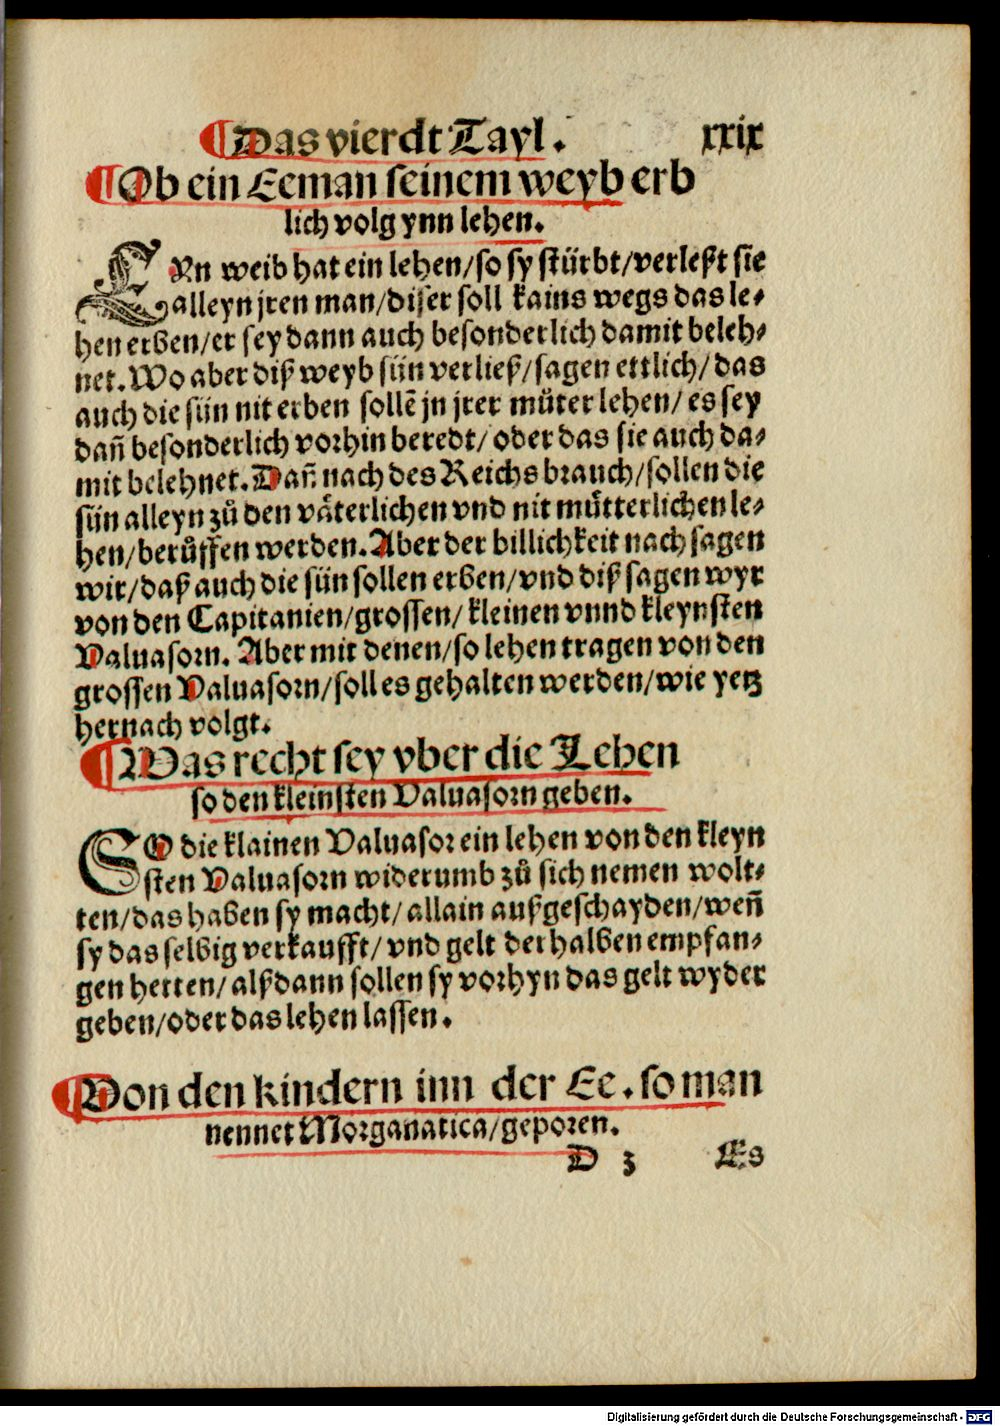 ¶Das vierdt Tayl. xxix
¶Ob ein Eeman seinem weyb erb
lich volg ynn lehen.
EYn weib hat ein lehen/so sy stürbt/verleßt sie
alleyn jren man/diser soll kains wegs das le⸗
hen erben/er sey dann auch besonderlich damit beleh⸗
net. Wo aber diß weyb sün verließ/sagen ettlich/das
auch die sün nit erben sollē jn jrer müter lehen/es sey
dañ besonderlich vorhin beredt/oder das sie auch da⸗
mit belehnet. Dañ nach des Reichs brauch/sollen die
sün alleyn zů den väterlichen vnd nit můtterlichen le⸗
hen/berůffen werden. Aber der billichkeit nach sagen
wir/daß auch die sün sollen erben/vnd diß sagen wyr
von den Capitanien/grossen/kleinen vnnd kleynsten
Valuasorn. Aber mit denen/so lehen tragen von den
grossen Valuasorn/soll es gehalten werden/wie yetz
hernach volgt.
¶Was recht sey vber die Lehen
so den kleinsten Valuasorn geben.
SO die klainen Valuasor ein lehen von den kleyn
sten Valuasorn widerumb zů sich nemen wolt⸗
ten/das haben sy macht/allain außgeschayden/weñ
sy das selbig verkaufft/vnd gelt derhalben empfan⸗
gen hetten/alßdann sollen sy vorhyn das gelt wyder
geben/oder das lehen lassen.
¶Von den kindern inn der Ee. so man
nennet Morganatica/geporen.
D 3 Es
Digitalisierung gefördert durch die Deutsche Forschungsgemeinschaft - DFG